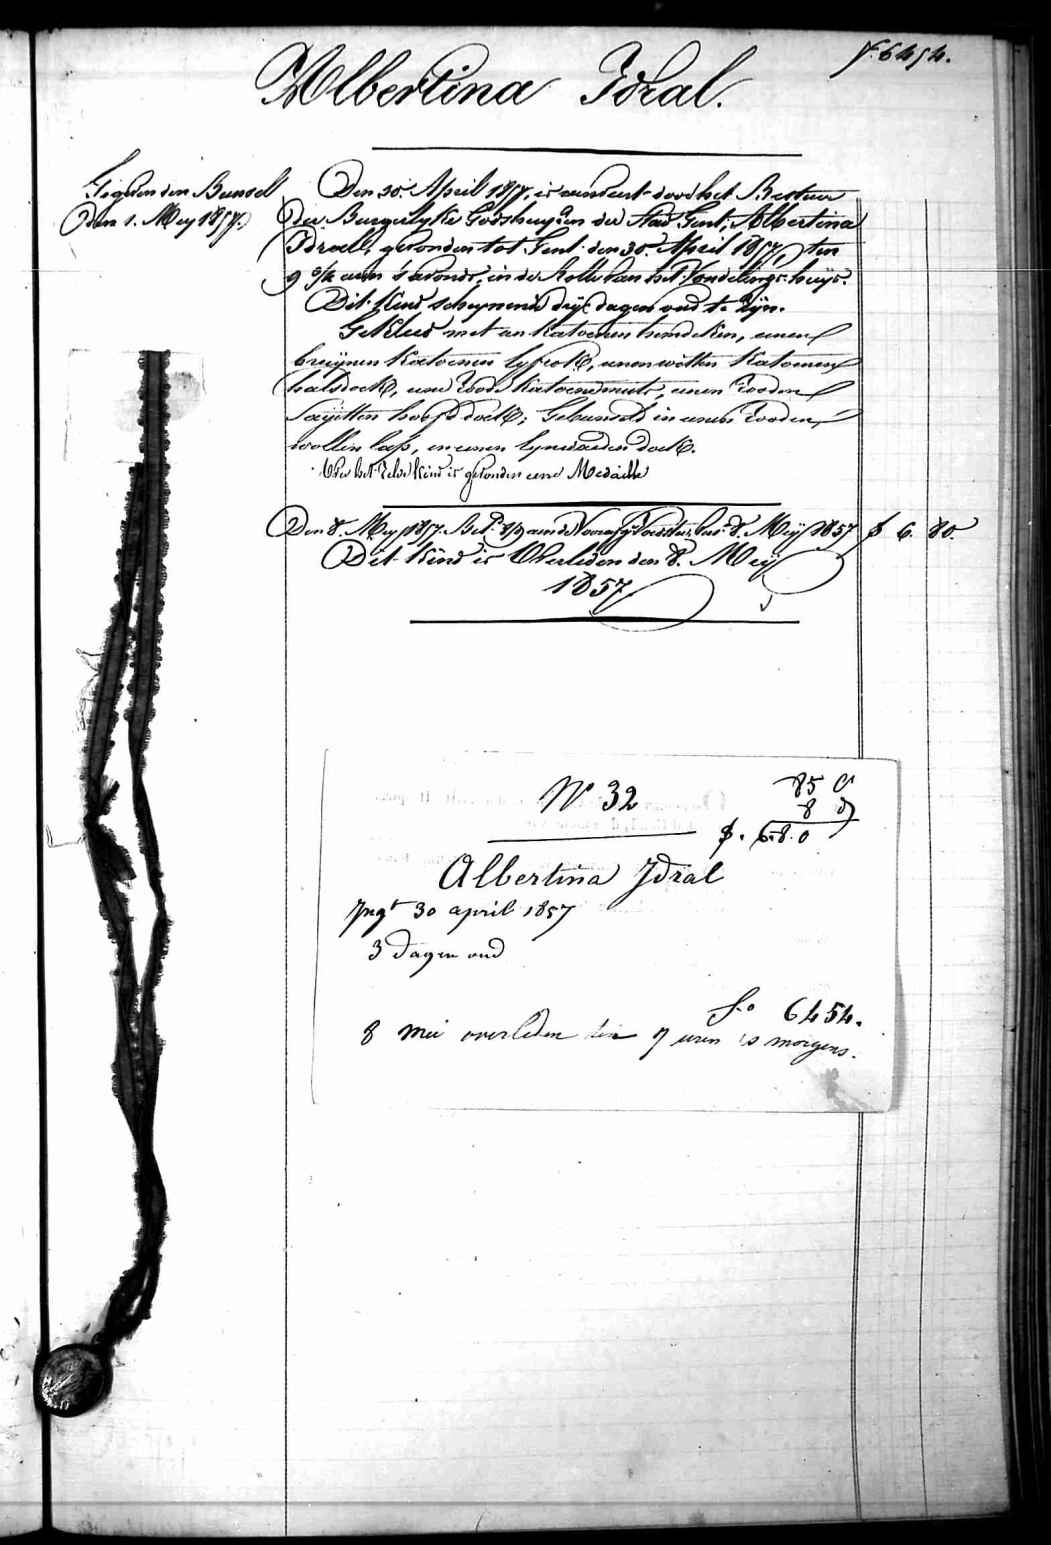 f. 6454.
Albertina Idral.
den Bundel
Den 1. Mey 1857.
Den 30 April 1857, is aenveert door het Bestuer
der Burgerlyke Godshuyzen der Stad Gent, Albertina
Idrael, gevonden tot Gent den 30 April 1857, ten
9 3/4 uren s'avonds, in de Rolle van het Vondelings-huys.
Dit Kind schynende drije dagen oud te zyn.
Gekleed met een katoenen hemdeken, eenen
bruynen katoenen lyfrok, eenen witten katoenen
halsdoek, eene roode katoene muts, eenen rooden
sayetten hoofddoek; Gebundeld in eenen rooden
wollen lap, en eenen lynwaeden doek.
Over het zelve Kind is gevonden eene Medaille
Den 8. Mey 1857. Bet. aen de Voorsz. Voedster, tot 8. Mey 1857 f 6. 80.
Dit Kind is Overleden den 8. Mey
1857
N° 32
85 c
8 d
f. 6.8.0
Albertina Idral
Ingt 30 april 1857
3 dagen oud
f.o 6454.
8 mei overleden ten 7 uren 's morgens.